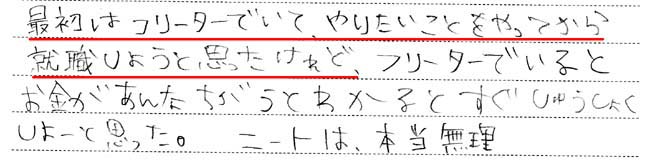 最初はフリーターでいて、やりたいことをやってから
就職しようと思ったけれど、フリーターでいると
お金があんなちがうとわかるとすぐしゅうしょく
しよーと思った。 ニートは、本当無理